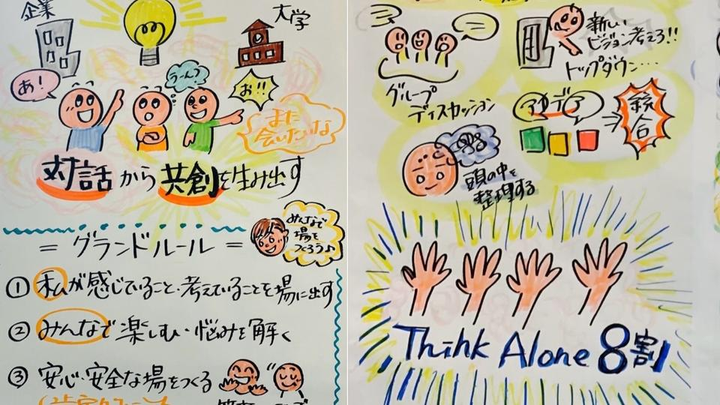 企業
大学
あ!
うーん?
お!!
また
会いたいな
対話から共創を生み出す
= グランドルール =
みんなで
場を
つくろう♪
① 私が感じていること・考えていることを場に出す
② みんなで楽しむ・悩みを解く
③ 安心・安全な場をつくる
新しい
ビジョン考えろ!!
トップダウン…
グループ
ディスカッション
アイデア
統合
頭の中を
整理する
Think Alone 8割